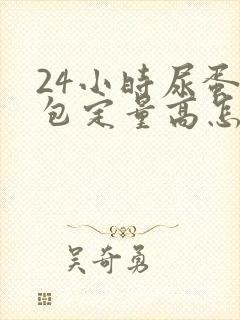 24小时尿蛋
包定量高怎
吴奇勇